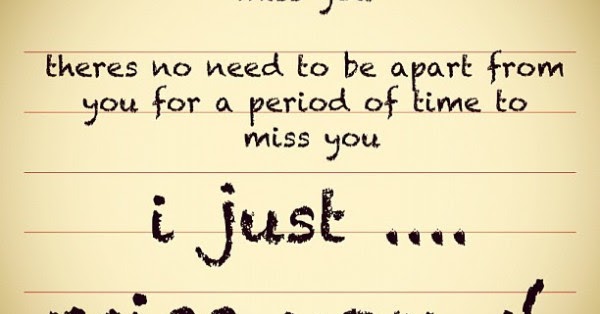 miss you
theres no need to be apart from
you for a period of time to
miss you
i just ....
miss you